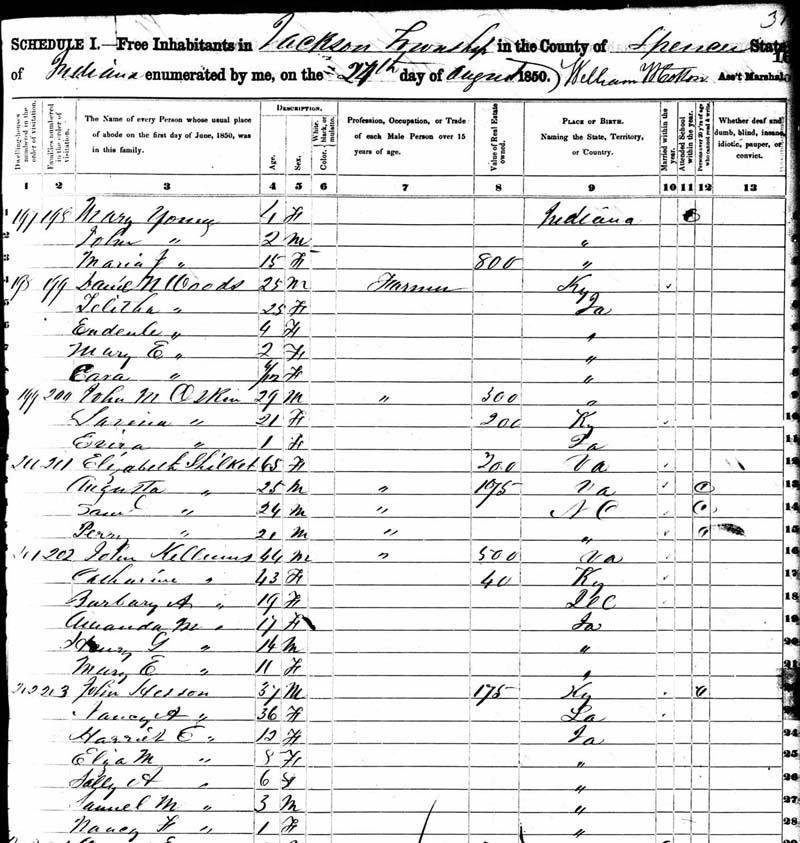 31
SCHEDULE I.—Free Inhabitants in Jackson Township in the County of Spencer State
of Indiana enumerated by me, on the 27th day of August 1850. William W Cotton Ass't Marshal
Dwelling-houses numbered in the order of visitation.
Families numbered in the order of visitation.
The Name of every Person whose usual place of abode on the first day of June, 1850, was in this family.
DESCRIPTION.
Age.
Sex.
Color. White, black, or mulatto.
Profession, Occupation, or Trade of each Male Person over 15 years of age.
Value of Real Estate owned.
PLACE OF BIRTH. Naming the State, Territory, or Country.
Married within the year.
Attended School within the year.
Persons over 20 y'rs of age who cannot read & write.
Whether deaf and dumb, blind, insane, idiotic, pauper, or convict.
1 2 3 4 5 6 7 8 9 10 11 12 13
197 198 Mary Young 4 F Indiana
John " 2 M "
Maria J " 15 F 800 "
198 199 M Woods 25 M Farmer Ky
Telitha " 25 F Ia
" 4 F "
Mary E " 2 F "
Cara " F "
199 200 John M Oskin 29 M " 300 "
" 21 F 200 Ky
" 1 F Ia
201 Elizabeth 65 F 200 Va
Augusta " 25 M " 175 Va
Sam " 24 M " N C
Perry " 21 M " "
202 John Kellums 44 M " 500 Va
Catharine " 43 F 40 Ky
Barbary A " 19 F
Amanda M " 17 F Ia
Henry G " 14 M "
Mary E " 11 F "
202 203 John Hesson 37 M 175 Ky
Nancy A " 36 F
Harriet E " 12 F Ia
Eliza M " 8 F "
Sally A " 6 F "
Samuel M " 3 M "
Nancy F " 1 F "